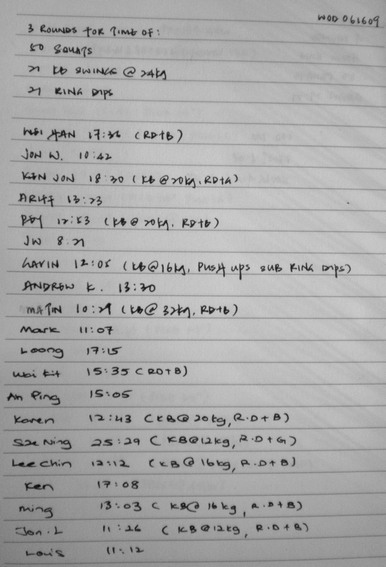 WOD 061609
3 ROUNDS FOR TIME OF:
50 SQUATS
21 KB SWINGS @ 24kg
21 RING DIPS
WEI HAN 17:36 (RD+B)
JON W. 10:42
KEN JON 18:30 (KB @ 20kg, RD+G)
ARIFF 13:23
12:53 (KB @ 20kg, RD+B)
JW 8.21
GAVIN 12:05 (KB@16kg, PUSH UPS SUB RING DIPS)
ANDREW K. 13:30
MARTIN 10:29 (KB@ 32kg, RD+B)
Mark 11:07
Loong 17:15
Wai Kit 15:35 (RD+B)
An Ping 15:05
Karen 12:43 (KB@20kg, R.D+B)
Sze Ning 25:29 (KB@12kg, R.D+G)
Lee Chin 12:12 (KB@16kg, R.D+B)
Ken 17:08
Ming 13:03 (KB@ 16kg, R.D+B)
Jon.L 11:26 (KB@12kg, R.D+B)
Louis 11:12